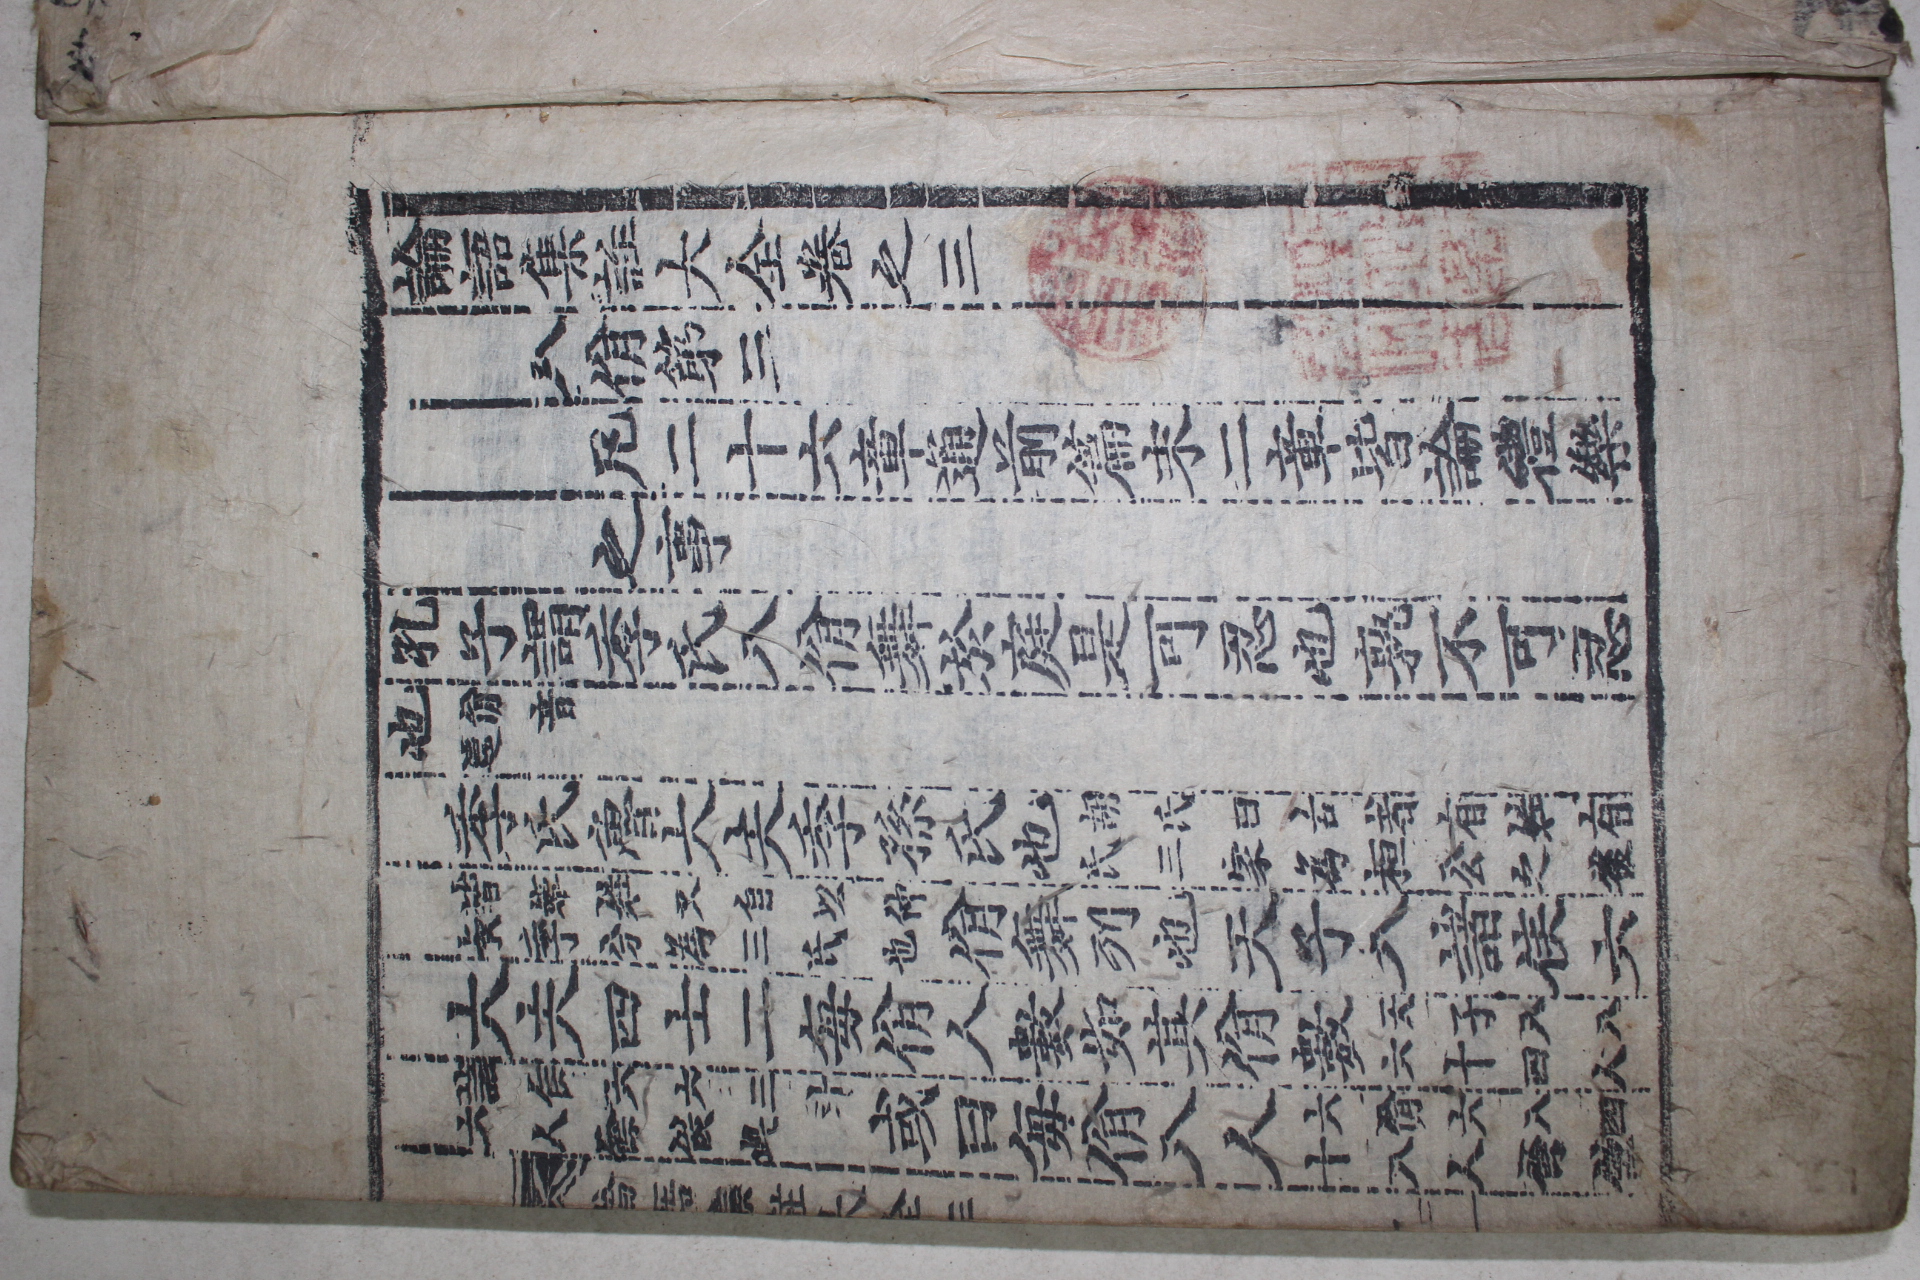 論語集註大全卷之三
八佾第三
凡二十六章通前篇末二章皆論禮樂
之事
孔子謂季氏八佾舞於庭是可忍也孰不可忍
也佾音逸
季氏魯大夫季孫氏也胡氏曰古者有姓有氏三家為桓公之後
皆姬姓又自以仲孟序分為三氏也佾舞列也天子八諸侯六
大夫四士二每佾人數如其佾數天子八八六十四人
諸侯六六三十六人餘做此或曰每佾八人六佾六八四十八人
論語集註大全三